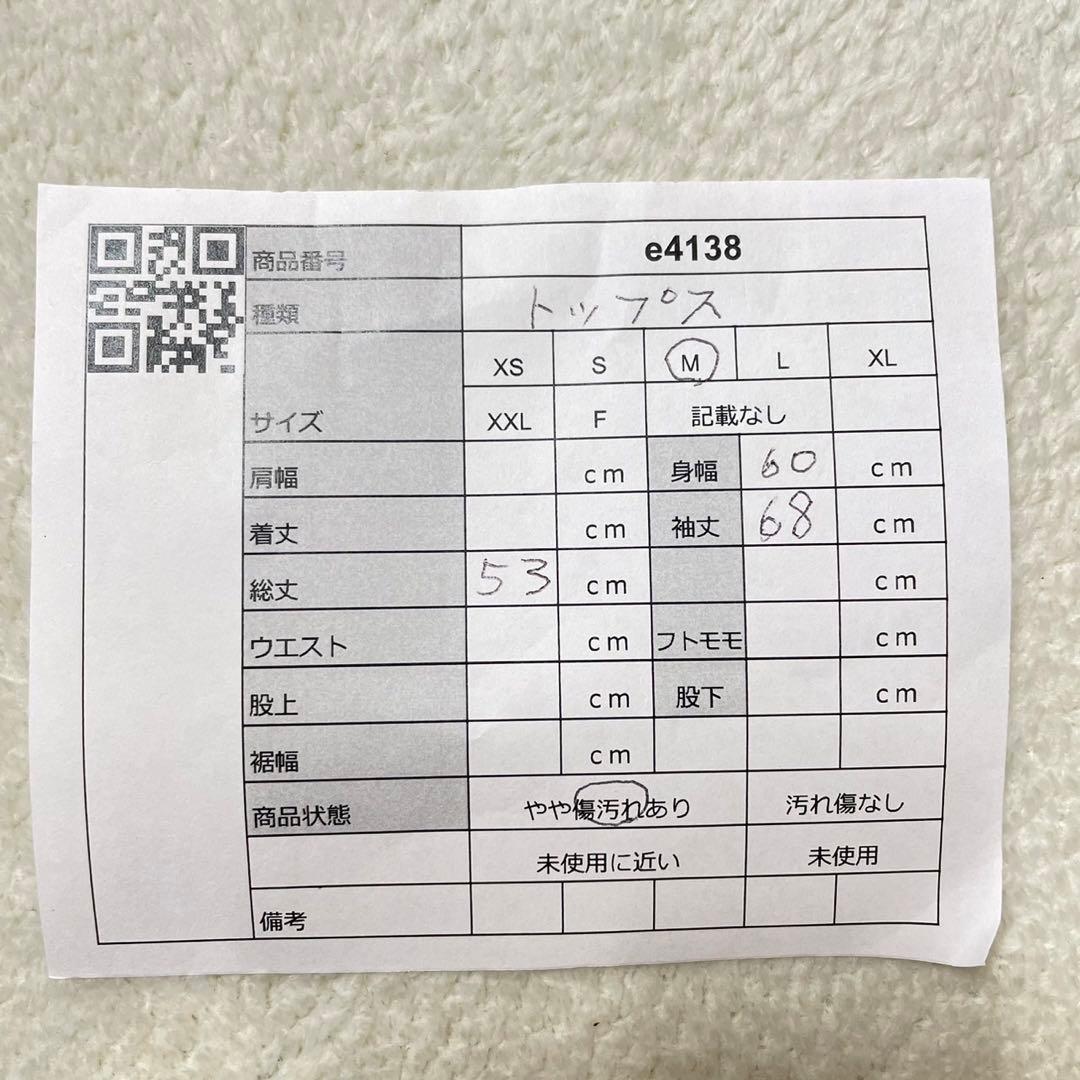 商品番号 e4138
種類 トップス
XS S M L XL
サイズ XXL F 記載なし
肩幅 cm 身幅 60 cm
着丈 cm 袖丈 68 cm
総丈 53 cm cm
ウエスト cm フトモモ cm
股上 cm 股下 cm
裾幅 cm
商品状態 やや傷汚れあり 汚れ傷なし
未使用に近い 未使用
備考